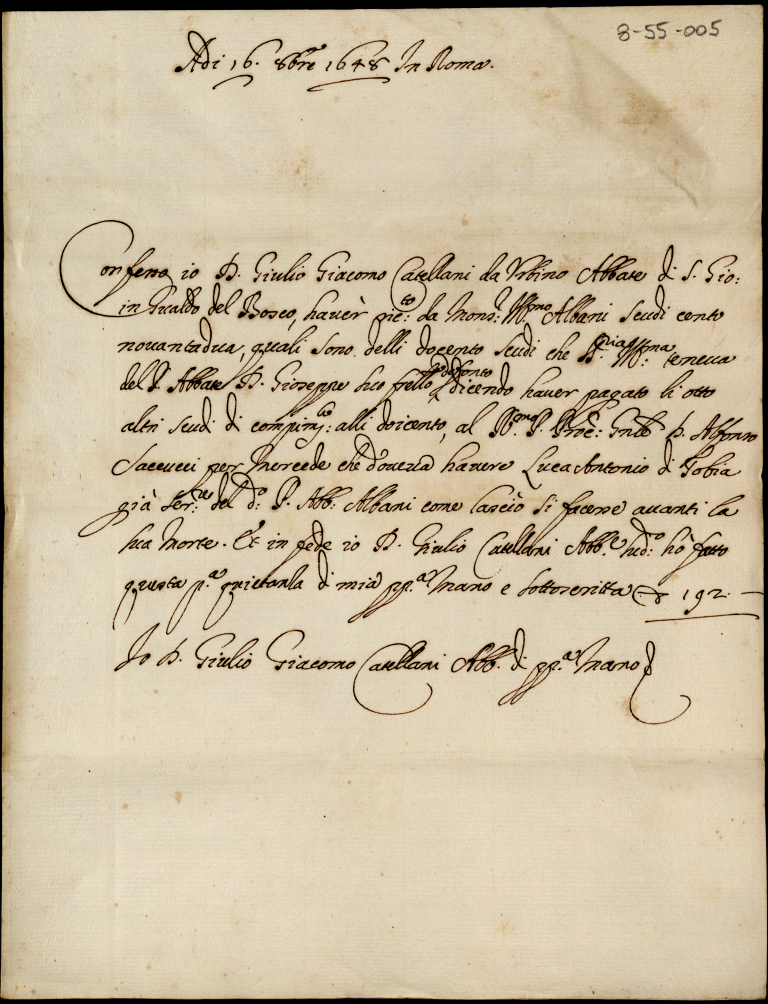 8-55-005
Adi 16. 8bre 1648 In Roma.
Confesso io D. Giulio Giacomo Catellani da Urbino Abbate di S. Gio:
in Gualdo del Bosco, haver ric:to da Mons.r Ill.mo Albani scudi cento
novantadua, quali sono delli docento scudi che S. S.ria Ill.ma: teneva
del P. Abbate D. Gioseppe suo frello defonto dicendo haver pagato li otto
altri scudi di compim:to alli doicento, al R.mo P. Proc: Gnle D. Alfonso
Saccucci per mercede che doveva havere Luca Antonio di Tobia
già ser:re del d:o P. Abb: Albani come lasciò si facesse avanti la
sua morte. Et in fede io D. Giulio Catellani Abb.e sud:o hò fatto
questa p.a quietanza di mia pp.a mano e sottoscritta 192. —
Io D. Giulio Giacomo Catellani Abb. di pp.a mano